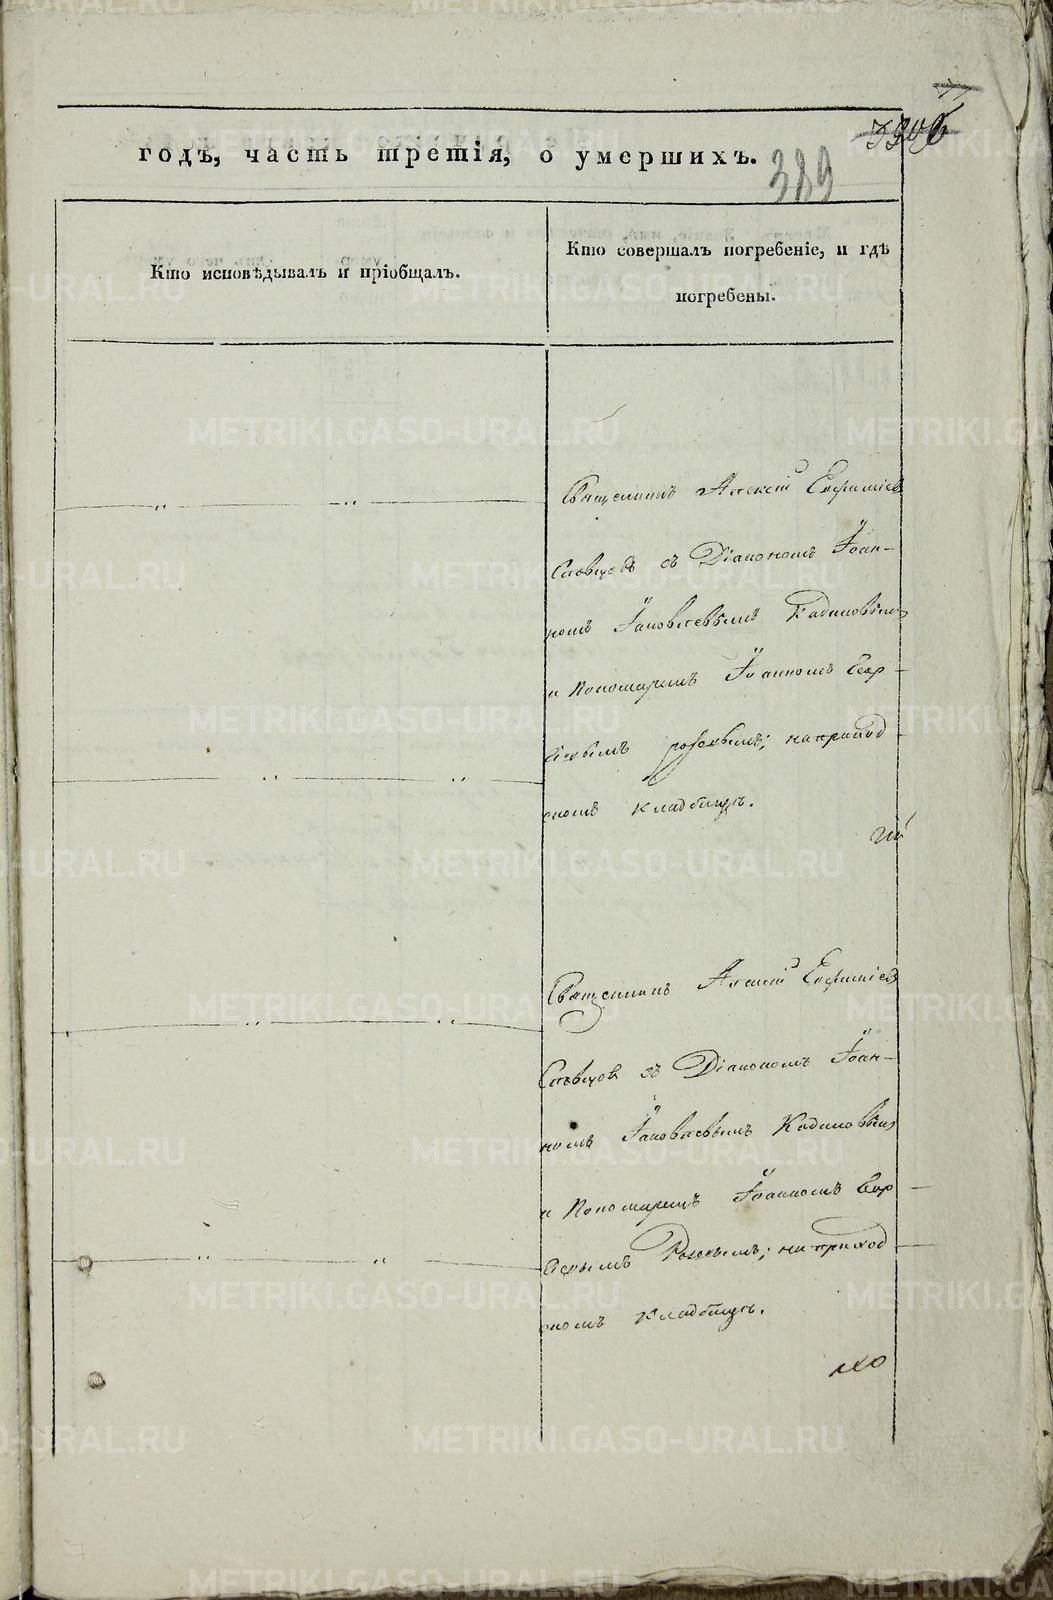 годъ, часть третія, о умершихъ.
389
Кто исповѣдывалъ и пріобщалъ.
Кто совершалъ погребеніе, и гдѣ
погребены.
Священникъ Алексій Евфиміев
Словцовъ съ Діакономъ Іоан-
номъ Іаковлевымъ Кадиловымъ
и Пономаремъ Іоанномъ Геор-
гіевымъ; на приход
скомъ кладбищѣ.
Священникъ Алексій Евфиміев
Словцов съ Діакономъ Іоан-
номъ Іаковлевымъ Кадиловым
и Пономаремъ Іоанномъ Геор-
гіевымъ; на приход
скомъ кладбищѣ.
METRIKI.GASO-URAL.RU